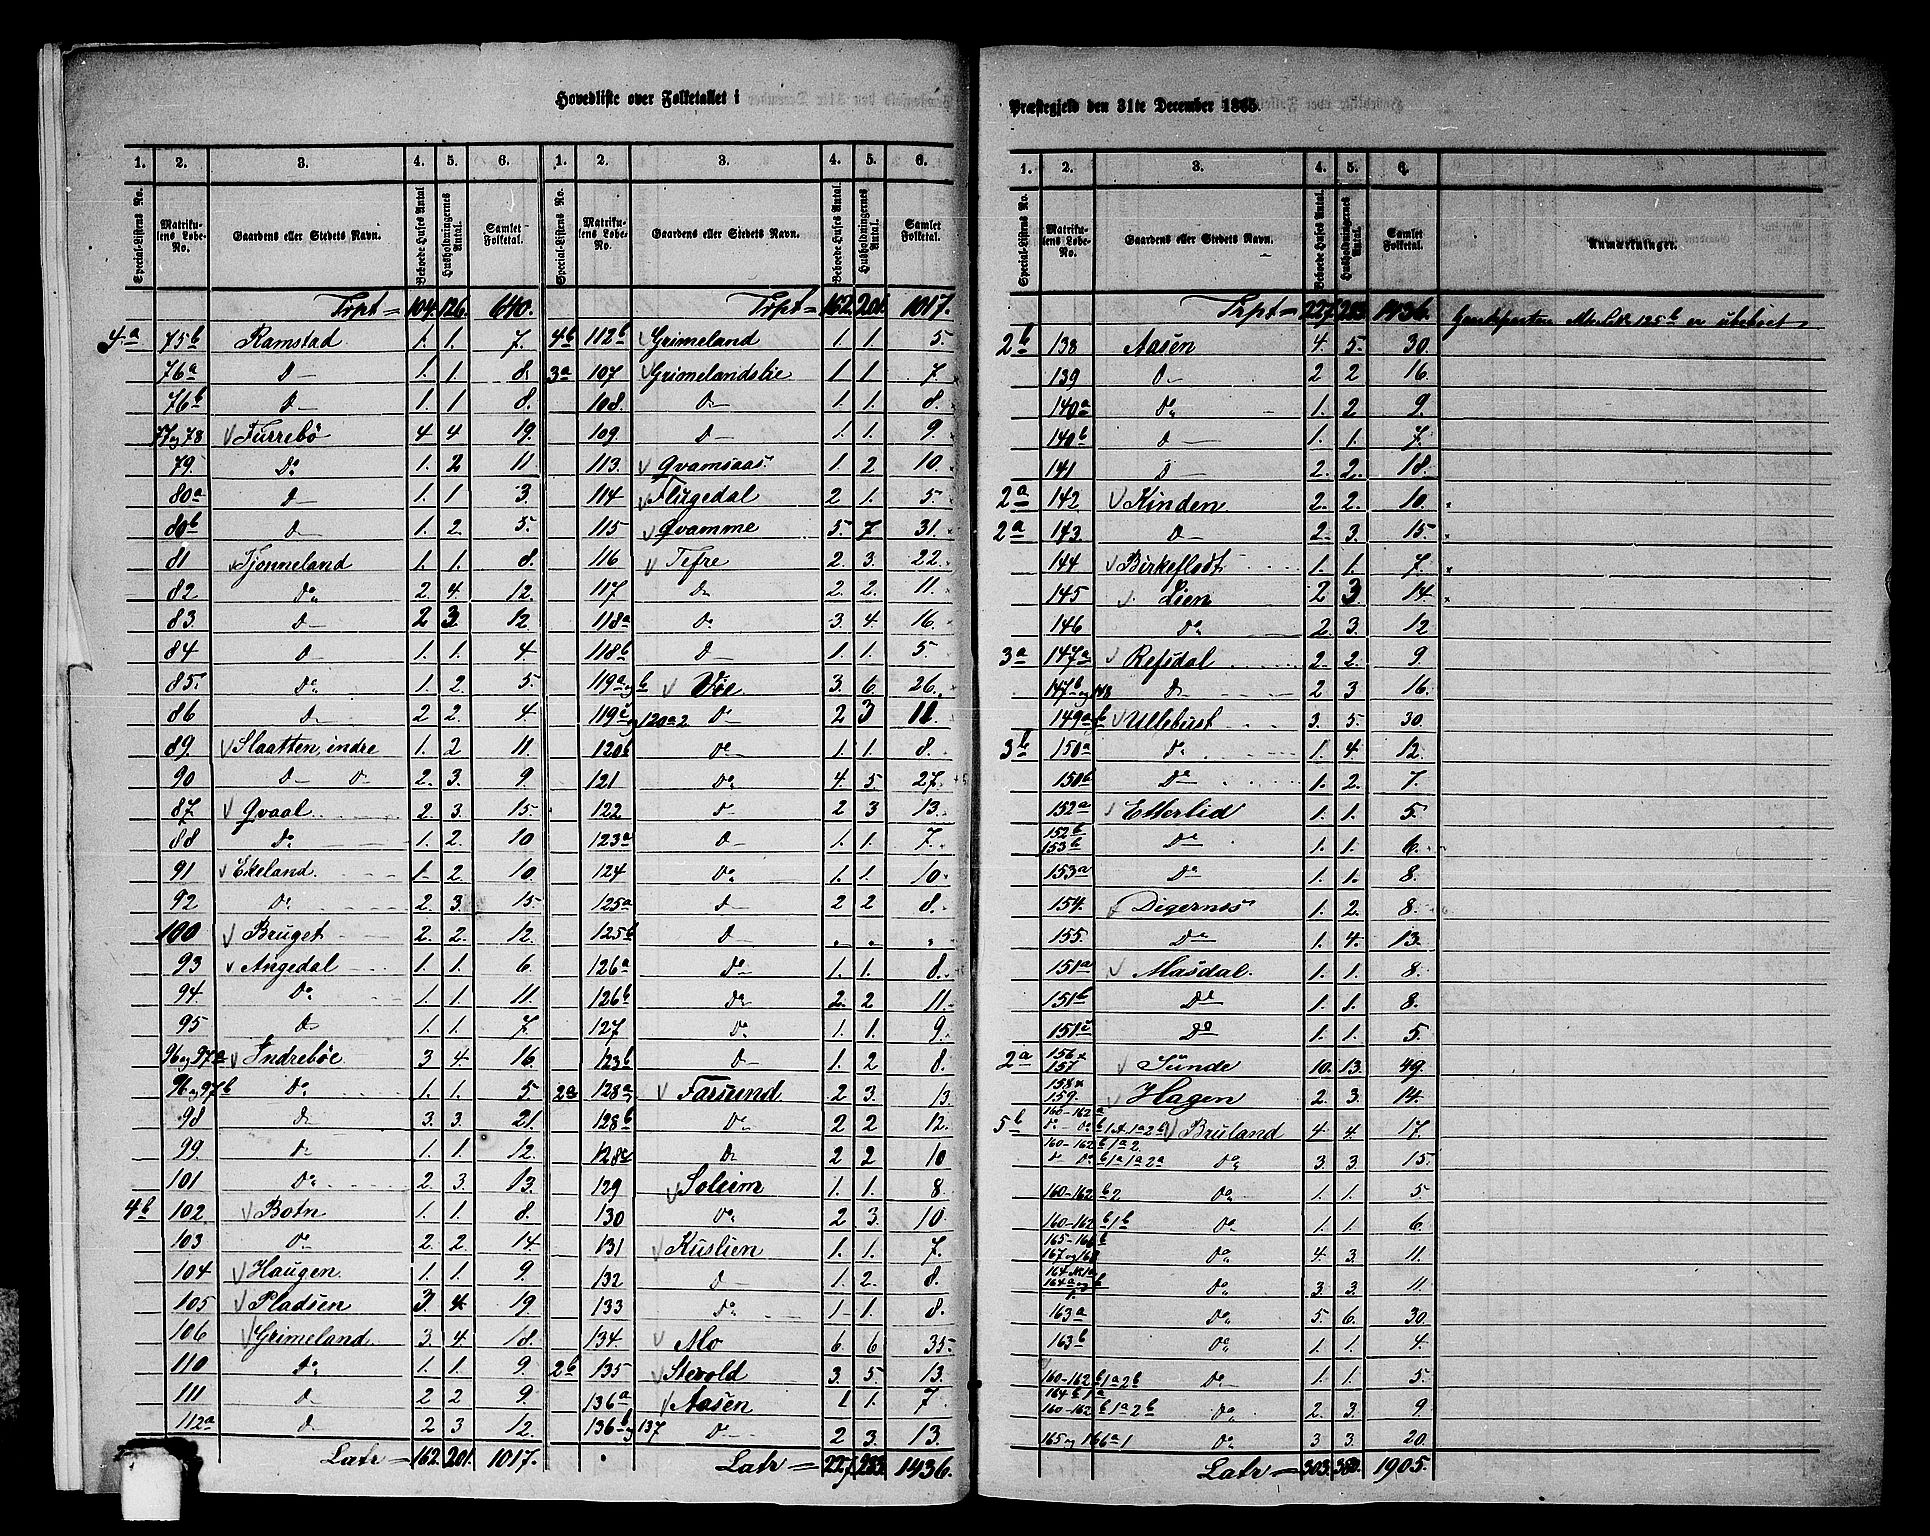 Hovedliste over Folketallet i
Præstegjeld den 31te December 1865.
1. 2. 3. 4. 5. 6. 1. 2. 3. 4. 5. 6.
Special-Listens No. Matrikulens Løbe-No. Gaardens eller Stedets Navn. Beboede Huses Antal. Husholdningernes Antal. Samlet Folketal. Special-Listens No. Matrikulens Løbe-No. Gaardens eller Stedets Navn. Beboede Huses Antal. Husholdningernes Antal. Samlet Folketal.
Trpt = 104. 126. 640. Trpt = 162. 201. 1017.
4a 75b Ramstad 1. 1. 7. 4b 112b Grimeland 1. 1. 5.
76a D 1. 1. 8. 3a 107 Grimelandslie 1. 1. 7.
76b D 1. 1 8. 108. D 1. 1. 8.
77 og 78 Furrebö 4 4 19. 109. D 1. 1. 9.
79. Do 1. 2 11. 113. Qvamsaas 1. 2 10.
80a D 1. 1 3. 114 Flugedal 2 1. 5.
80b D 1. 2 5. 115 Qvamme 5. 7 31.
81 Tjonneland 1. 1. 8. 116 Tefre 2. 3. 22.
82 Do 2 4. 12. 117 D 2. 2. 11.
83 D 2 3. 12. 118a Do 3. 4. 16.
84 D 1. 1. 4. 118b D 1. 1. 5.
85. Do 1. 2. 5. 119a og b Vöe 3. 6. 26.
86 D 2 2. 4 119c og 120a2 Do 2 3 11.
89 Slaatten, indre 1. 2 11. 120b Do 1. 1 8.
90 D D 2. 3. 9. 121 Do 4. 5 27.
87 Qvaal 2. 3. 15. 122 D 2 3 13.
88 Do 1. 2. 10 123a D 1. 1. 7.
91 Ekeland. 1- 2. 10. 124 Do 1. 1. 10.
92 Do 2. 3. 15. 125a D 2 2 8.
100 Bruget 2. 2. 12. 125b D . . .
93 Angedal 1. 1. 6. 126a Do 1. 1. 8.
94 Do 1. 1. 11. 126b Do 2. 2 11.
95 D 1. 1. 7. 127 Do 1. 1. 9.
96 og 97a Indreböe 3 4. 16 123b D 1. 2 8.
96 og 97b Do 1. 1. 5 2a 128a Farsund 2 3. 13.
98 D 3. 3. 21. 128b Do 2 2 12.
99 D 1. 1. 12. 128c D 2 2 10
101 Do 2. 3. 13. 129 Soleim 1. 1. 8
4b 102. Botn 1. 1. 8. 130 Do 2 3. 10.
103 Do 2. 2. 14. 131 Kuslien 1. 1. 7.
104 Haugen 1. 1. 9. 132 D 1. 2. 8.
105 Pladsen 3. 4. 19 133 Do 1- 1. 8.
106 Grimeland 3. 4. 18. 134. Mo 6. 6 35.
110 Do 1. 1. 9. 2b 135 Stevold 3 5 13.
111 D 2 2 9. 136a Aasen 1 1. 7
112a D 2 3 12. 136b og 137 D 2 3. 13.
Latr = 162. 201. 1017. Latr = 227. 283. 1436.
1. 2. 3. 4. 5. 6.
Special-Listens No. Matrikulens Løbe-No. Gaardens eller Stedets Navn. Beboede Huses Antal. Husholdningernes Antal. Samlet Folketal. Anmærkninger.
Trpt = 227. 283. 1436. 125b er ubeboet
2b 138 Aasen 4. 5. 30.
139 D 2 2 16.
140a Do 1. 2 9.
140b D 1. 1. 7.
141 D 2. 2. 18.
2a 142 Kinden 2. 2. 10.
2a 143. D 2. 3. 15.
144 Birkeflodt 1. 1. 7.
145 Lien 2 3. 14.
146 Do 2. 3. 12
3a 147a Refsdal 2. 2. 9.
147b og 148 D 2 3. 16.
149ab Ullebust 3. 5. 30.
3b 150a Do 1. 4. 12.
150b Do 1. 2. 7.
152a Etterlid 1. 1. 5.
152b 153b Do 1. 1. 6.
153a Do 1. 1. 8.
154. Digernes 1. 2. 8.
155. Do 1. 4. 13.
151a Masdal. 1. 1. 8.
151b Do 1. 1. 8.
151c Do 1. 1. 5.
2a 156 157 Sunde 10. 13. 49.
158 159. Hagen 2. 3. 14.
5b 160-162a Bruland 4. 4. 17.
160-162 b1a2. Do 3. 3. 15.
160-162 b2 Do 1. 1. 5
160-162 b1b Do 1. 1. 6.
165-166b 167 og 168 Do 4. 3. 11.
164a og b Do 3. 3. 11.
163a Do 5. 6. 30.
163b Do 1. 1. 4.
160-162 b1a2b Do 1. 1. 5.
164b1a 160-162 b1a2b Do 2. 3. 9.
165 og 166a1 Do 3 3. 20.
Latr = 303. 380. 1905.